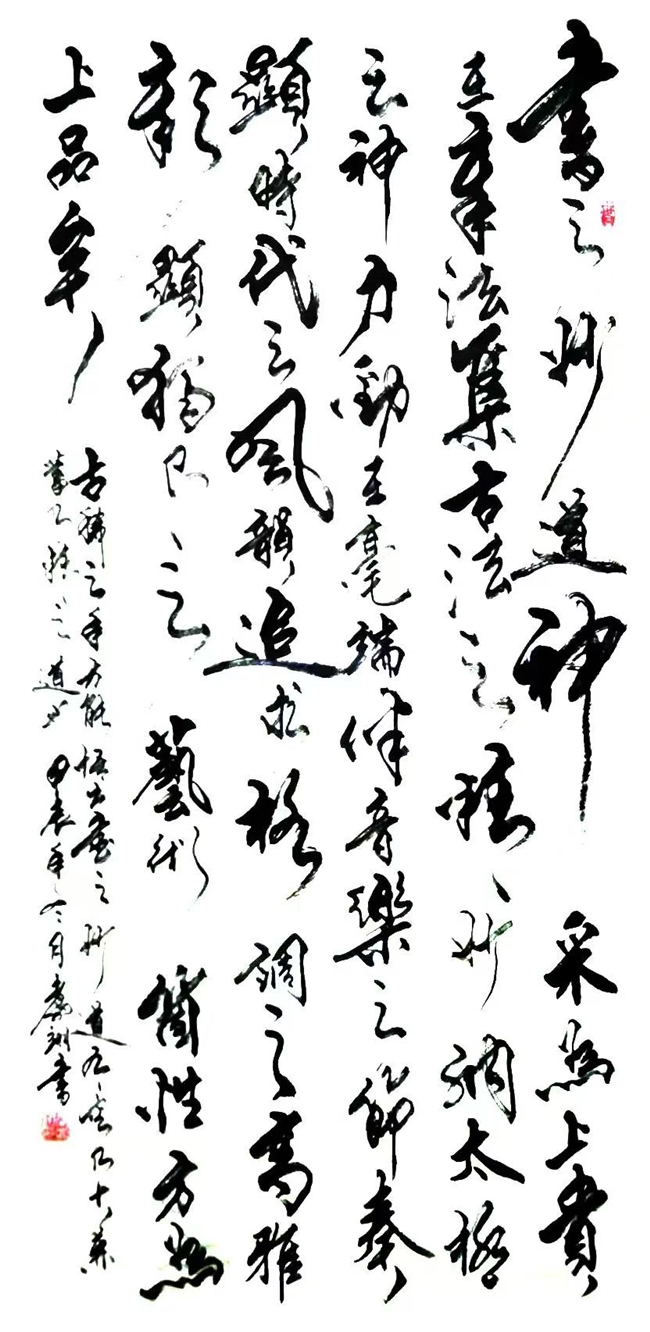 書之妙道神采為上貴
在章法集古法之精妙納太極
之神力動在毫端伴音樂之節奏
顯時代之風韻追求格調之高雅
彰顯獨具之藝術箇性方為
上品
古稀之年方能悟之妙道
之道也甲辰年月書